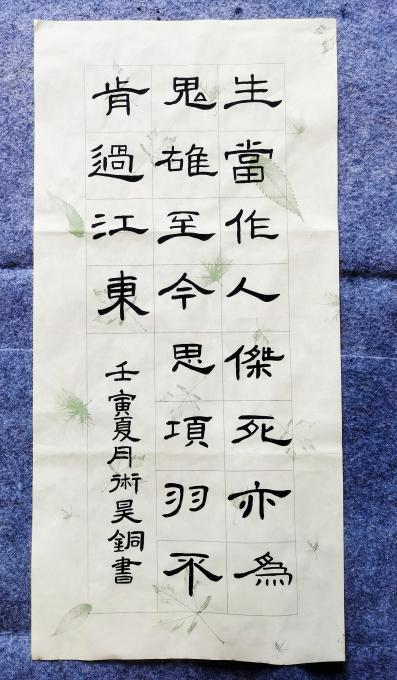 生當作人傑死亦為
鬼雄至今思項羽不
肯過江東
壬寅夏月術昊銅書